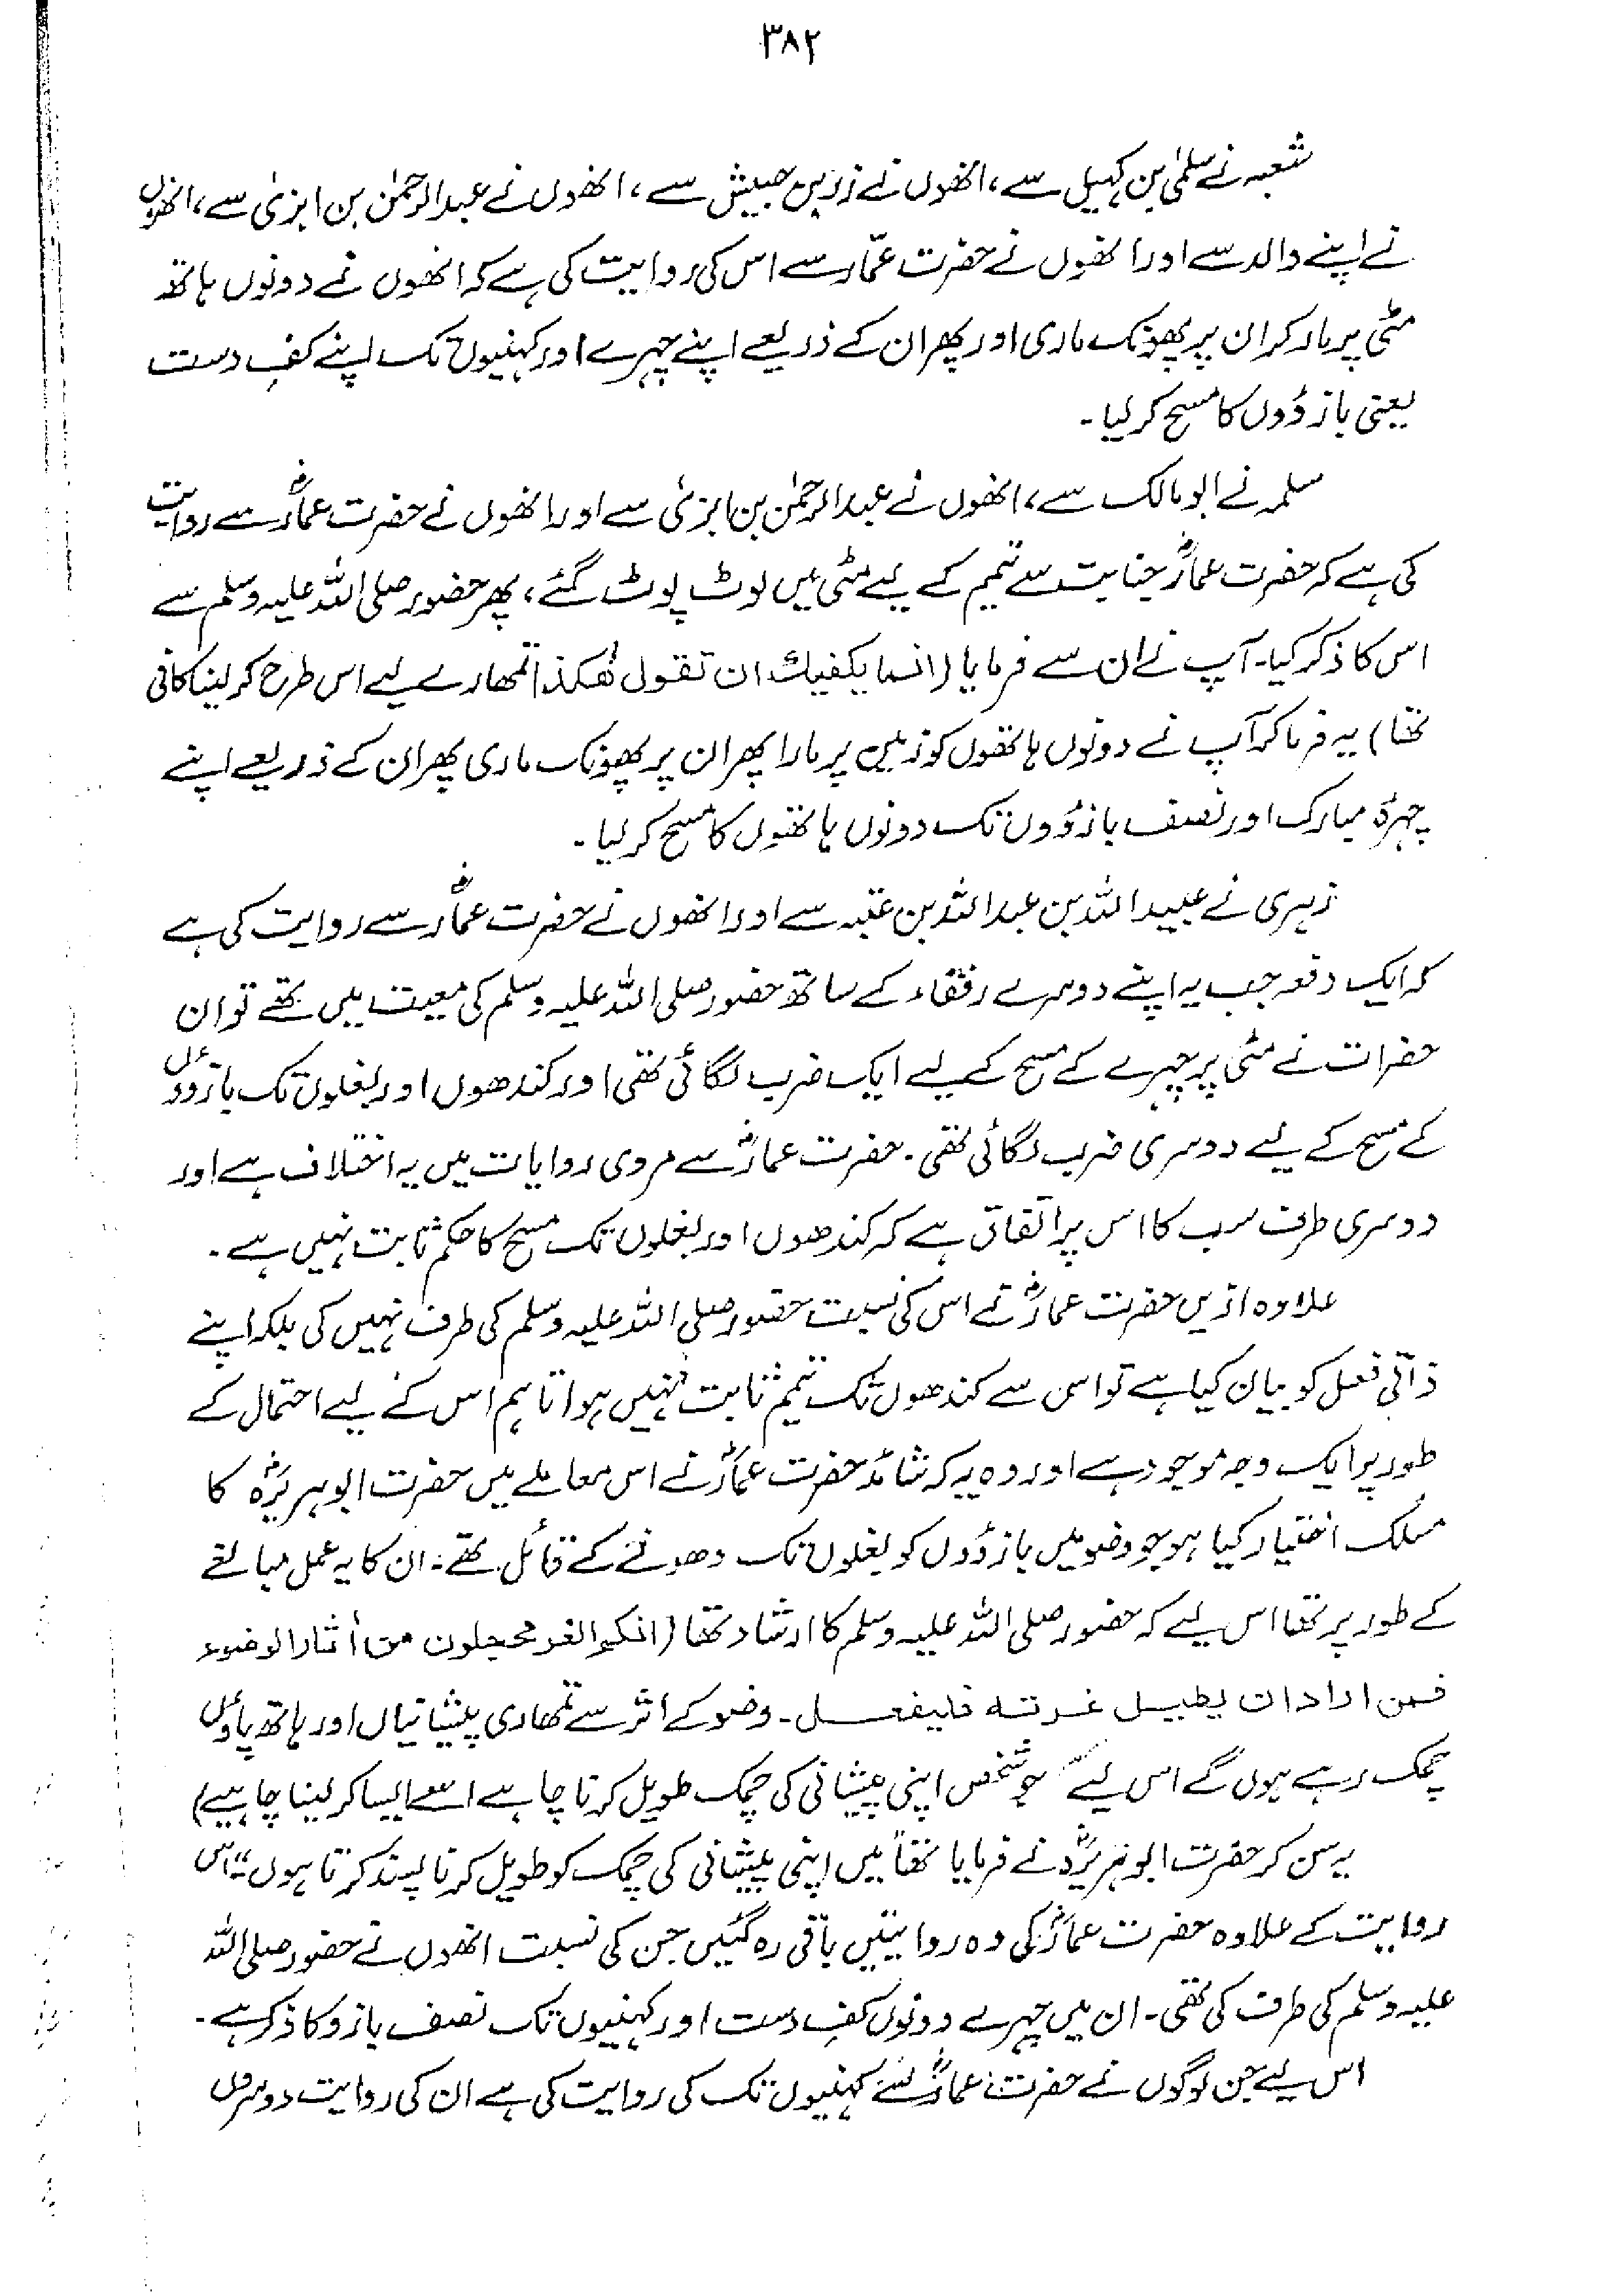 ۳۸۲
شعبہ نے سلمیٰ بن کہیل سے، انھوں نے زر بن حبیش سے، انھوں نے عبدالرحمٰن بن ابزیٰ سے، انھوں
نے اپنے والد سے اور انھوں نے حضرت عمّار سے اس کی روایت کی ہے کہ انھوں نے دونوں ہاتھ
مٹی پر مار کر ان پر پھونک ماری اور پھر ان کے ذریعے اپنے چہرے اور کہنیوں تک اپنے کفِ دست
یعنی بازوؤں کا مسح کر لیا۔
سلمہ نے ابو مالک سے، انھوں نے عبدالرحمٰن بن ابزیٰ سے اور انھوں نے حضرت عمارؓ سے روایت
کی ہے کہ حضرت عمارؓ جنابت سے تیمم کے لیے مٹی میں لوٹ پوٹ گئے، پھر حضور صلی اللہ علیہ وسلم سے
اس کا ذکر کیا۔ آپ نے ان سے فرمایا (انما یکفیك ان تقول ھٰکذا تمھارے لیے اس طرح کر لینا کافی
تھا) یہ فرما کر آپ نے دونوں ہاتھوں کو زمین پر مارا پھر ان پر پھونک ماری پھر ان کے ذریعے اپنے
چہرۂ مبارک اور نصف بازوؤں تک دونوں ہاتھوں کا مسح کر لیا۔
زہری نے عبیداللہ بن عبداللہ بن عتبہ سے اور انھوں نے حضرت عمارؓ سے روایت کی ہے
کہ ایک دفعہ جب یہ اپنے دوسرے رفقاء کے ساتھ حضور صلی اللہ علیہ وسلم کی معیت میں تھے تو ان
حضرات نے مٹی پر چہرے کے مسح کے لیے ایک ضرب لگائی تھی اور کندھوں اور بغلوں تک بازوؤں
کے مسح کے لیے دوسری ضرب لگائی تھی۔ حضرت عمارؓ سے مروی روایات میں یہ اختلاف ہے اور
دوسری طرف سب کا اس پر اتفاق ہے کہ کندھوں اور بغلوں تک مسح کا حکم ثابت نہیں ہے۔
علاوہ ازیں حضرت عمارؓ نے اس کی نسبت حضور صلی اللہ علیہ وسلم کی طرف نہیں کی بلکہ اپنے
ذاتی فعل کو بیان کیا ہے تو اس سے کندھوں تک تیمم ثابت نہیں ہوا تاہم اس کے لیے احتمال کے
طور پر ایک وجہ موجود ہے اور وہ یہ کہ شائد حضرت عمارؓ نے اس معاملے میں حضرت ابوہریرہؓ کا
مسلک اختیار کیا ہو جو وضو میں بازوؤں کو بغلوں تک دھونے کے قائل تھے۔ ان کا یہ عمل مبالغے
کے طور پر تھا اس لیے کہ حضور صلی اللہ علیہ وسلم کا ارشاد تھا (انکم الغر محجلون من اٰثار الوضوء
فمن اراد ان یطیل غرتہ فلیفعل۔ وضو کے اثر سے تمھاری پیشانیاں اور ہاتھ پاؤں
چمک رہے ہوں گے اس لیے جو شخص اپنی پیشانی کی چمک طویل کرنا چاہے اسے ایسا کر لینا چاہیے)
یہ سن کر حضرت ابوہریرہؓ نے فرمایا تھا "میں اپنی پیشانی کی چمک کو طویل کرنا پسند کرتا ہوں" اس
روایت کے علاوہ حضرت عمارؓ کی وہ روایتیں باقی رہ گئیں جن کی نسبت انھوں نے حضور صلی اللہ
علیہ وسلم کی طرف کی تھی۔ ان میں چہرے دونوں کفِ دست اور کہنیوں تک نصف بازو کا ذکر ہے۔
اس لیے جن لوگوں نے حضرت عمارؓ سے کہنیوں تک کی روایت کی ہے ان کی روایت دوسروں